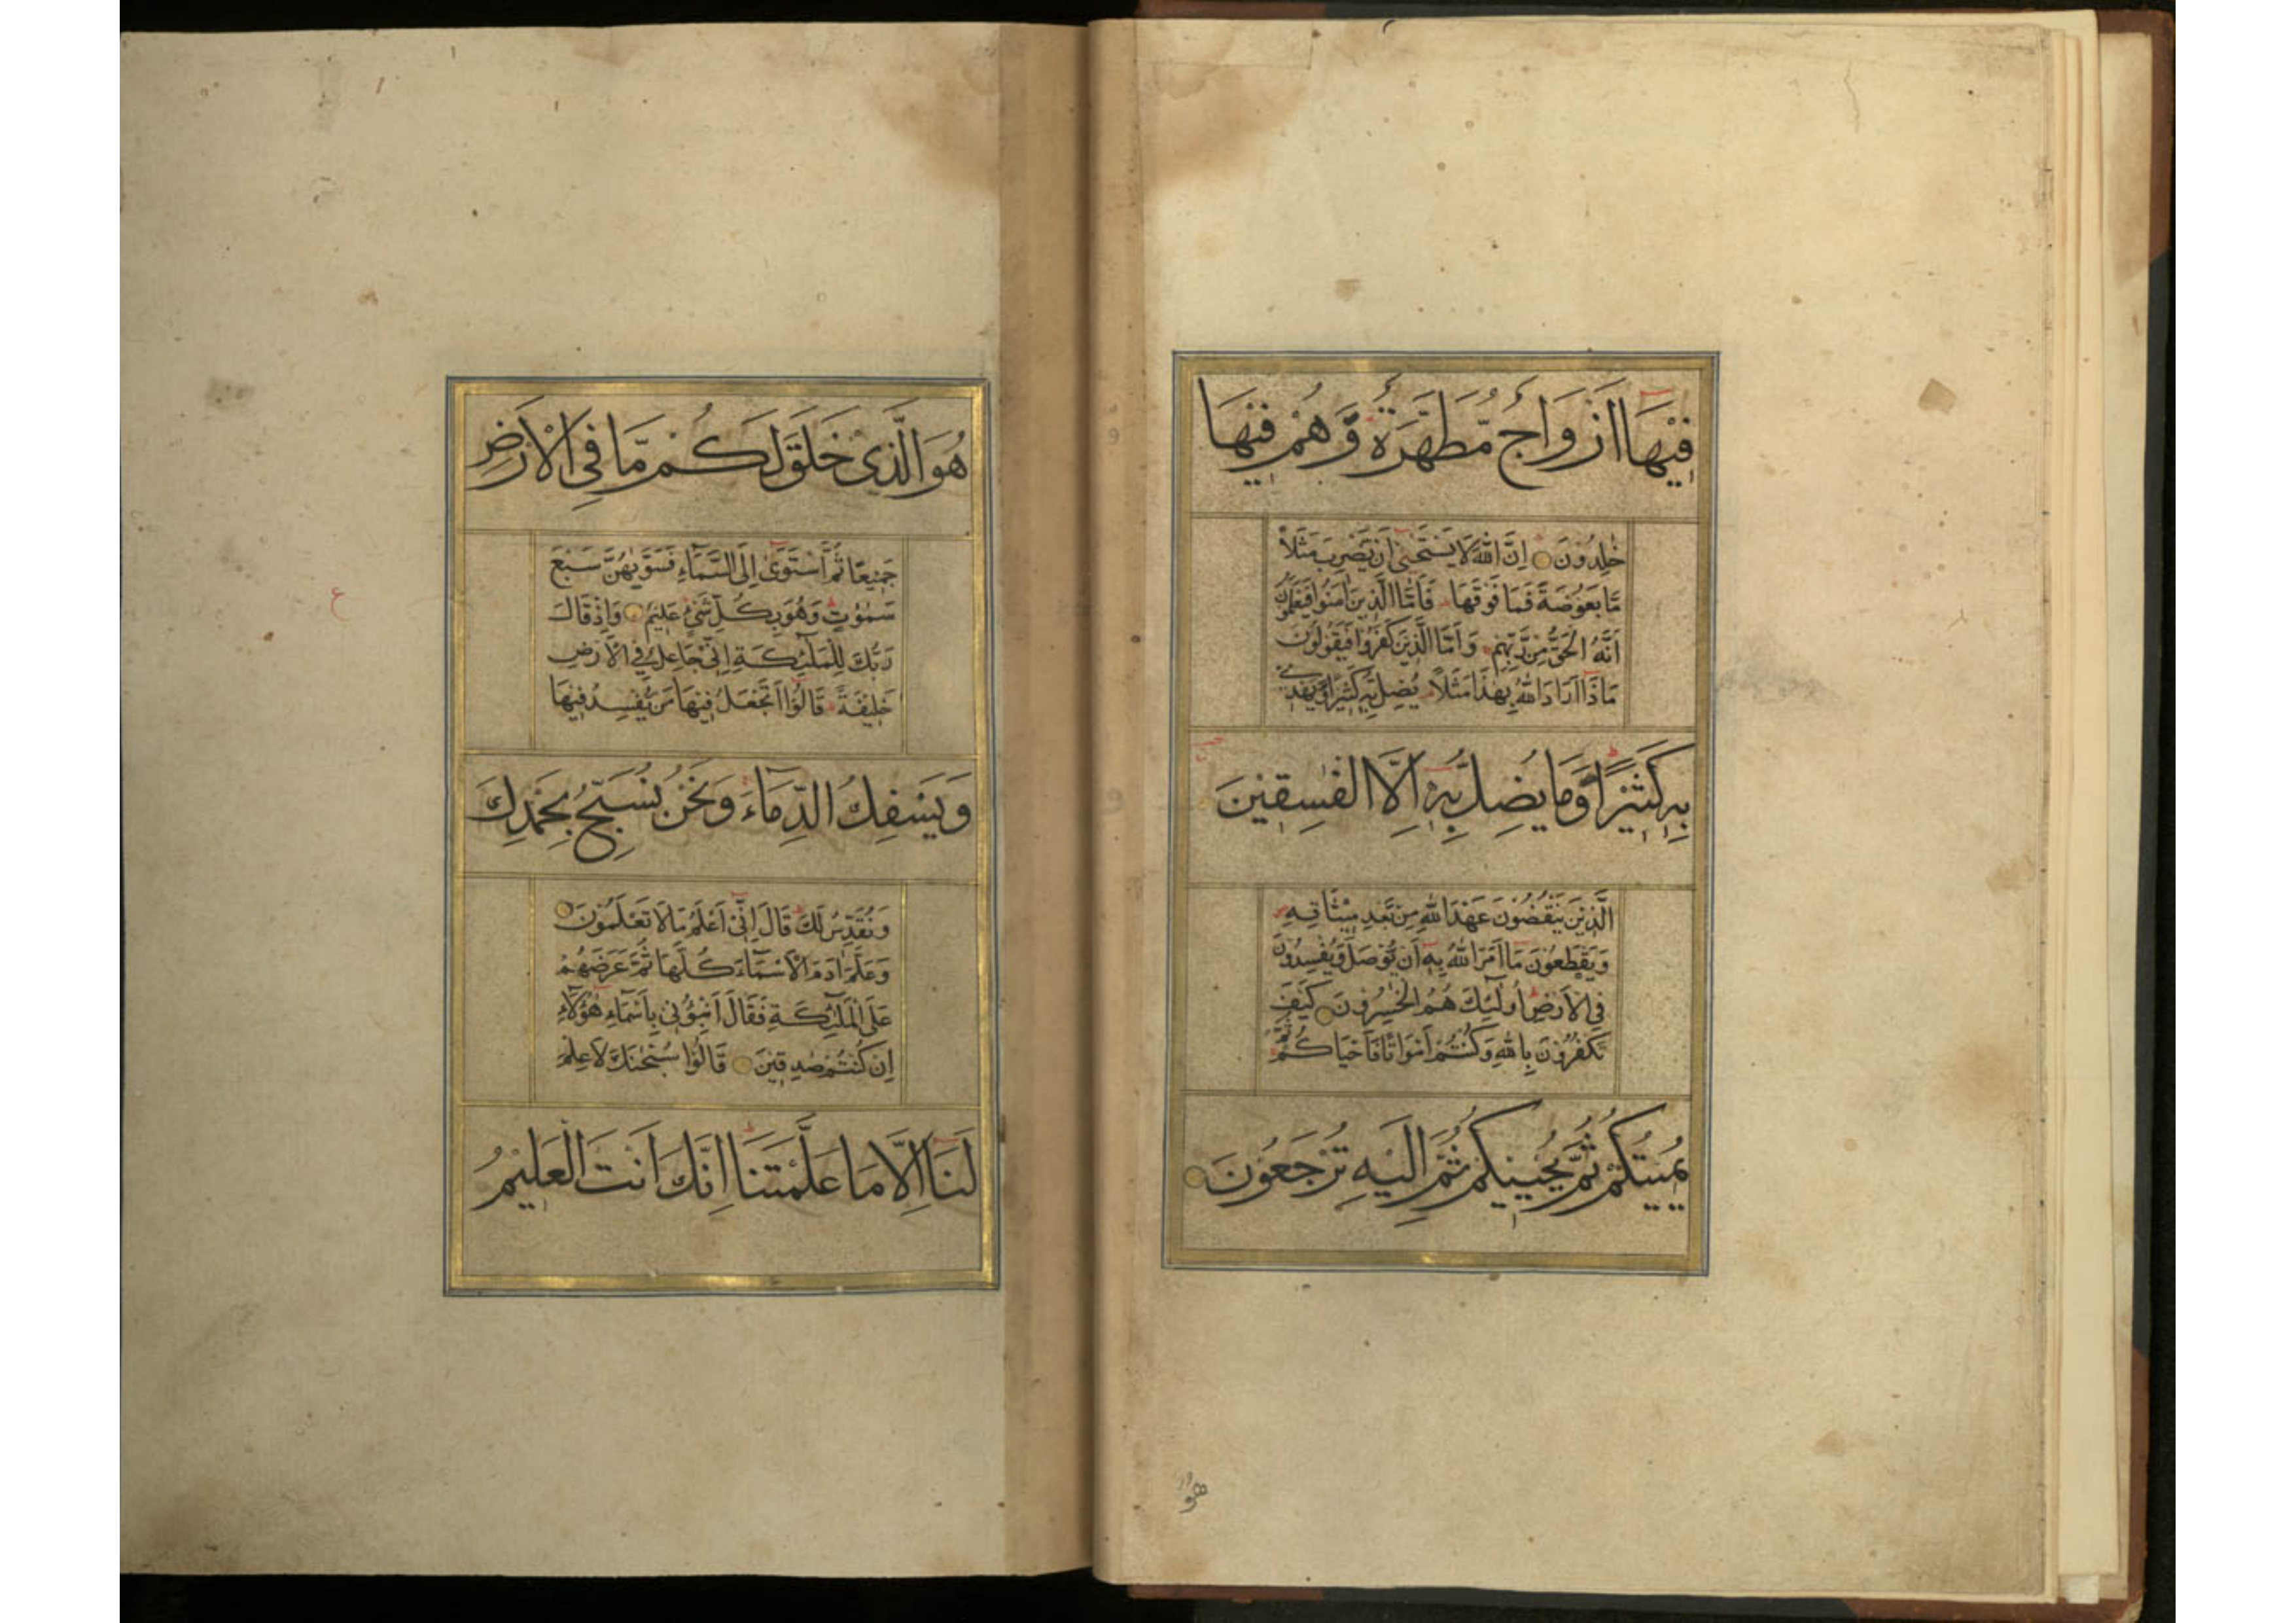 فِيْهَا اَزْوَاجٌ مُّطَهَّرَةٌ وَّهُمْ فِيْهَا
خٰلِدُوْنَ اِنَّ اللّٰهَ لَا يَسْتَحْيٖ اَنْ يَّضْرِبَ مَثَلاً
مَّا بَعُوْضَةً فَمَا فَوْقَهَا ط فَاَمَّا الَّذِيْنَ اٰمَنُوْا فَيَعْلَمُوْنَ
اَنَّهُ الْحَقُّ مِنْ رَّبِّهِمْ وَاَمَّا الَّذِيْنَ كَفَرُوْا فَيَقُوْلُوْنَ
مَاذَا اَرَادَ اللّٰهُ بِهٰذَا مَثَلاً يُضِلُّ بِهٖ كَثِيْرًا وَّيَهْدِيْ
بِهٖ كَثِيْرًا ط وَّمَا يُضِلُّ بِهٖ اِلَّا الْفٰسِقِيْنَ
الَّذِيْنَ يَنْقُضُوْنَ عَهْدَ اللّٰهِ مِنْ بَعْدِ مِيْثَاقِهٖ
وَيَقْطَعُوْنَ مَا اَمَرَ اللّٰهُ بِهٖ اَنْ يُّوْصَلَ وَيُفْسِدُوْنَ
فِي الْاَرْضِ ط اُولٰٓئِكَ هُمُ الْخٰسِرُوْنَ كَيْفَ
تَكْفُرُوْنَ بِاللّٰهِ وَكُنْتُمْ اَمْوَاتًا فَاَحْيَاكُمْ ثُمَّ
يُمِيْتُكُمْ ثُمَّ يُحْيِيْكُمْ ثُمَّ اِلَيْهِ تُرْجَعُوْنَ
هو
هُوَ الَّذِيْ خَلَقَ لَكُمْ مَّا فِي الْاَرْضِ
جَمِيْعًا ثُمَّ اسْتَوٰى اِلَى السَّمَآءِ فَسَوّٰىهُنَّ سَبْعَ
سَمٰوٰتٍ ط وَهُوَ بِكُلِّ شَيْءٍ عَلِيْمٌ وَاِذْ قَالَ
رَبُّكَ لِلْمَلٰٓئِكَةِ اِنِّيْ جَاعِلٌ فِي الْاَرْضِ
خَلِيْفَةً ط قَالُوْا اَتَجْعَلُ فِيْهَا مَنْ يُّفْسِدُ فِيْهَا
وَيَسْفِكُ الدِّمَآءَ وَنَحْنُ نُسَبِّحُ بِحَمْدِكَ
وَنُقَدِّسُ لَكَ ط قَالَ اِنِّيْ اَعْلَمُ مَا لَا تَعْلَمُوْنَ
وَعَلَّمَ اٰدَمَ الْاَسْمَآءَ كُلَّهَا ثُمَّ عَرَضَهُمْ
عَلَى الْمَلٰٓئِكَةِ فَقَالَ اَنْبِئُوْنِيْ بِاَسْمَآءِ هٰٓؤُلَآءِ
اِنْ كُنْتُمْ صٰدِقِيْنَ قَالُوْا سُبْحٰنَكَ لَا عِلْمَ
لَنَا اِلَّا مَا عَلَّمْتَنَا ط اِنَّكَ اَنْتَ الْعَلِيْمُ
ع